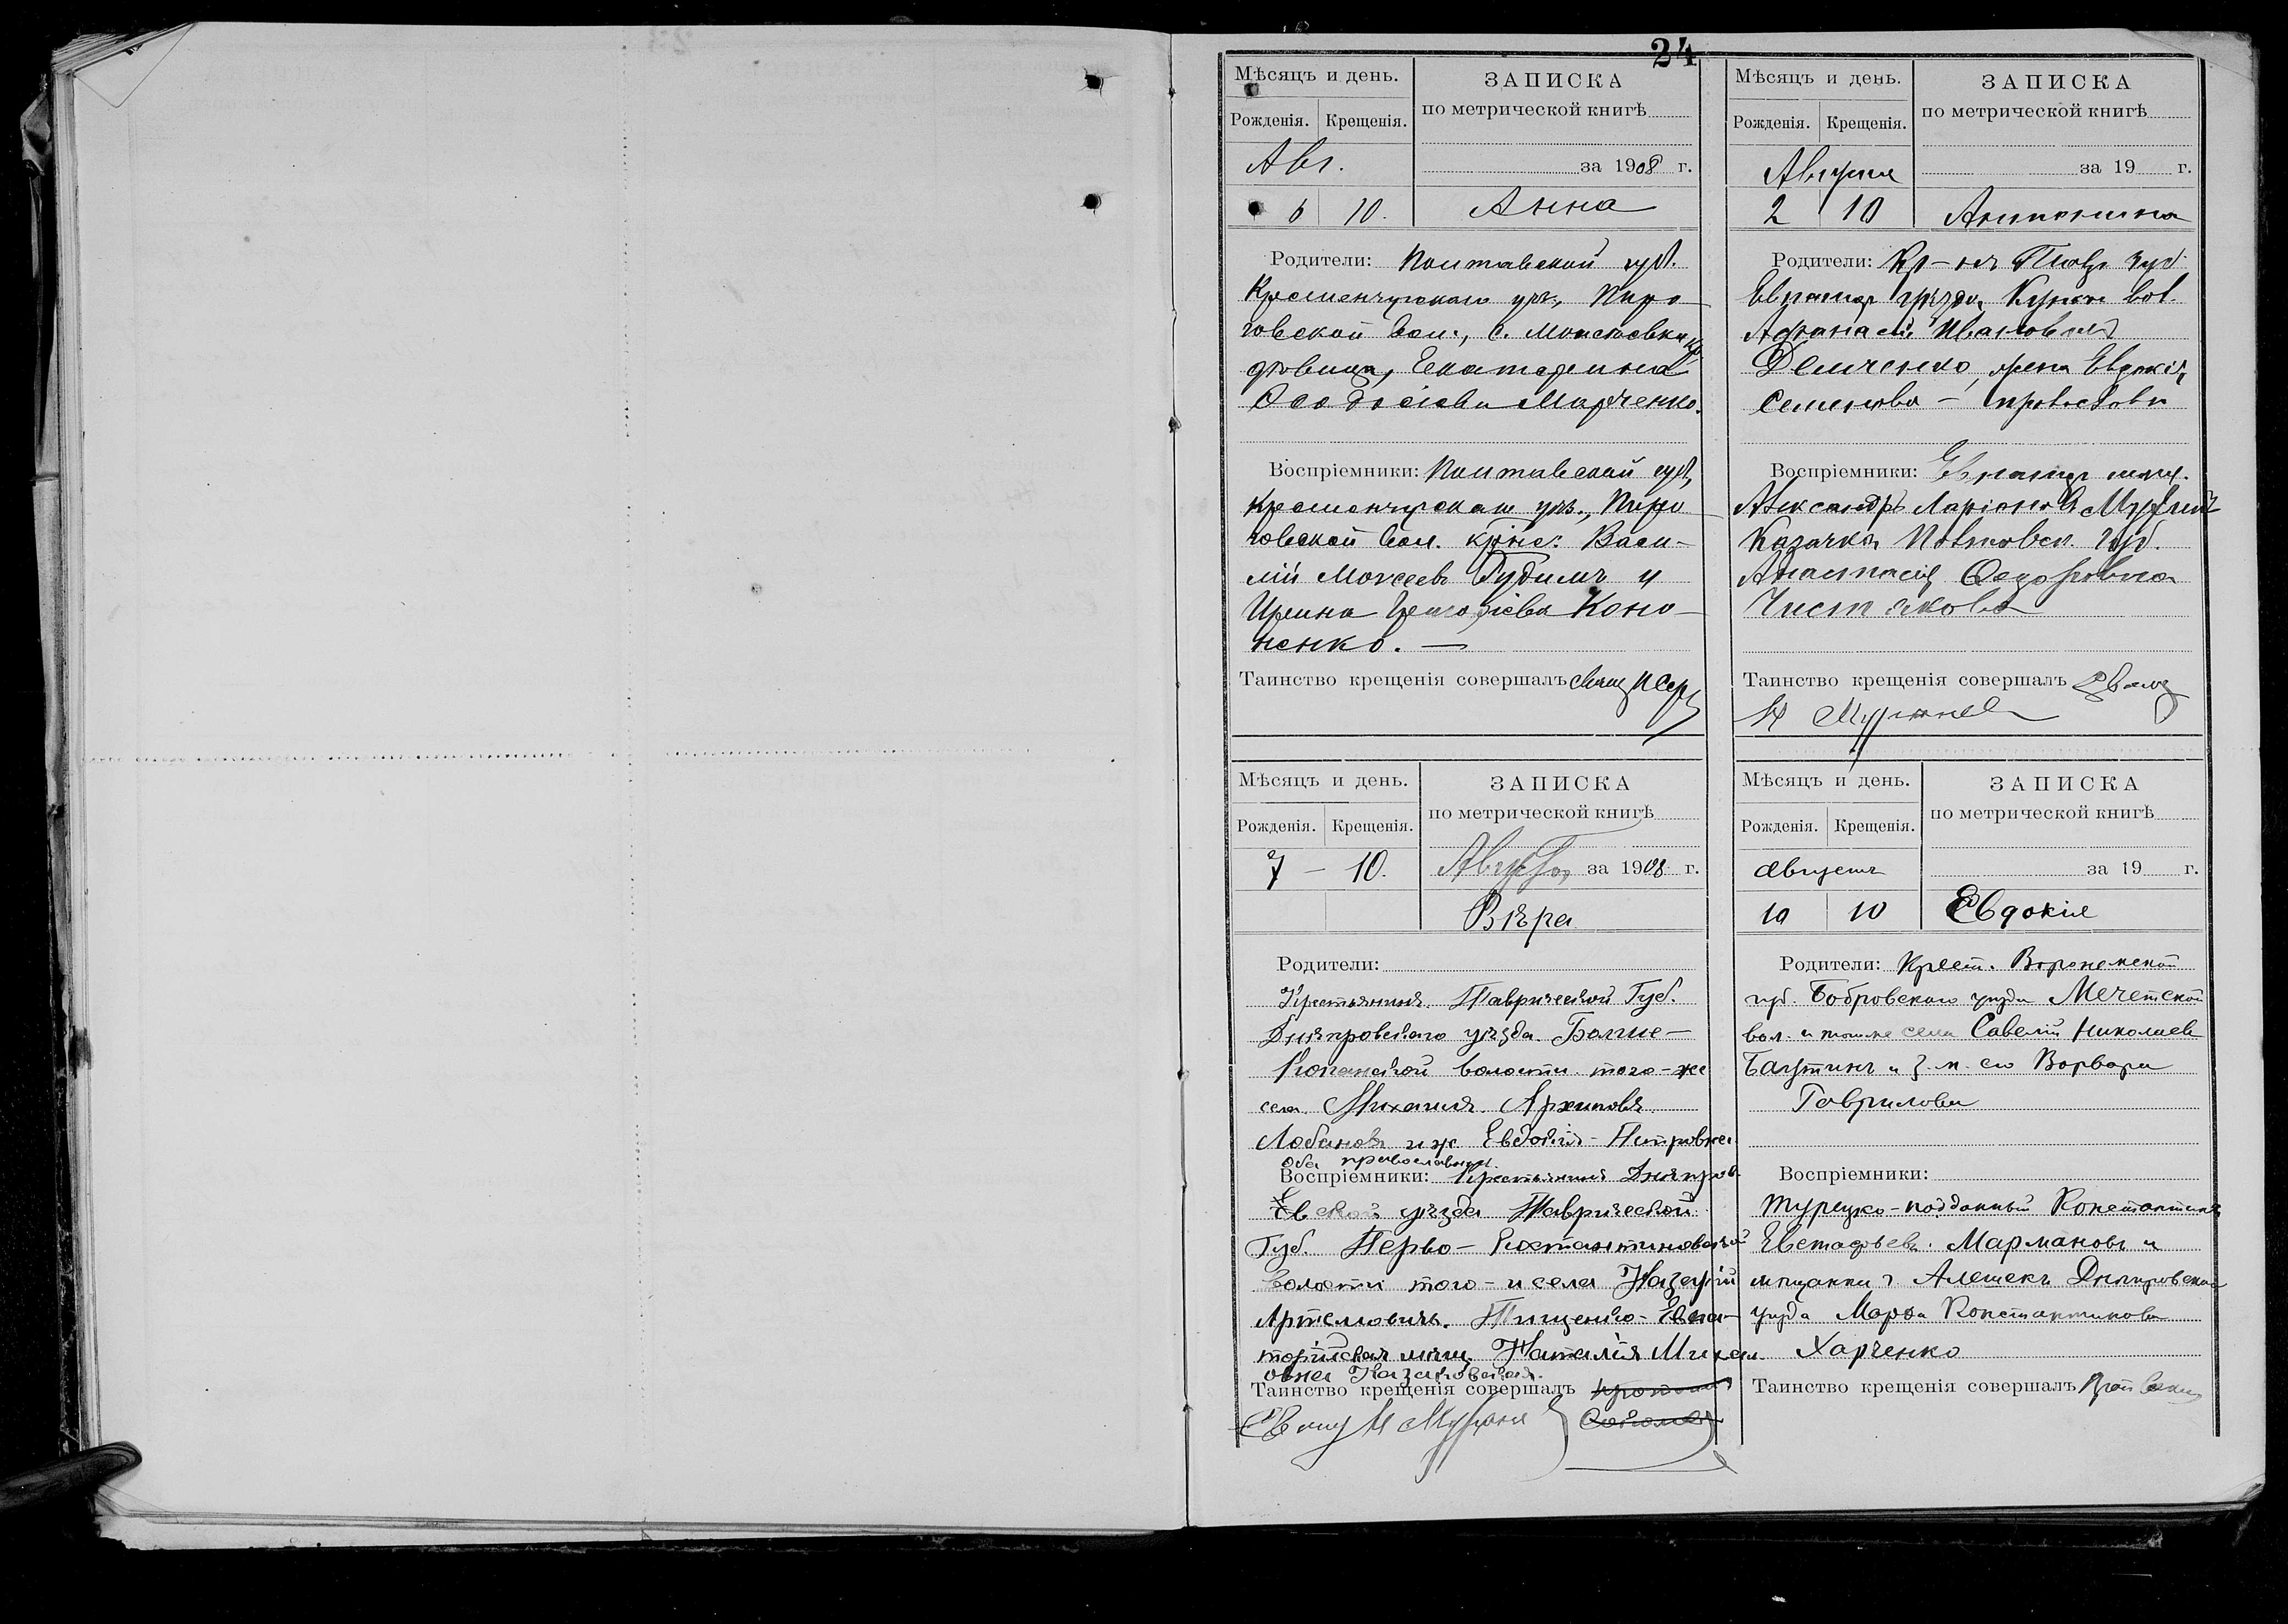 24
Мѣсяцъ и день.
ЗАПИСКА
Рожденія. Крещенія.
по метрической книгѣ
Авг.
за 1908 г.
6 10.
Анна
Родители: Полтавской губ.
Кременчугскаго уѣз., Пиро-
говской вол., с.
дѣвица, Екатерина
Ѳеодосіева Марченко.
Воспріемники: Полтавской губ.,
Кременчугскаго уѣз., Пиро-
говской вол. крѣс. Васи-
лій Моисеевъ Рудимъ и
Ирина Григоріева Коно-
ненко. —
Таинство крещенія совершалъ свящ
Мѣсяцъ и день.
ЗАПИСКА
Рожденія. Крещенія.
по метрической книгѣ
Августа
за 19 г.
2 10
Антонина
Родители: Кр-нъ губ.
уѣзда, вол.
Афанасій Ивановичъ
Демченко, жена Евдокія
Семенова – православн
Воспріемники: мѣщ.
Александръ Ларіоновъ
Казачка Полтавск. губ.
Анастасія Ѳедоровна
Таинство крещенія совершалъ Свящ
Мѣсяцъ и день.
ЗАПИСКА
Рожденія. Крещенія.
по метрической книгѣ
7 – 10. Августа за 1908 г.
Вѣра
Родители:
Крестьянинъ Таврической Губ.
Днѣпровскаго уѣзда Больше-
Копанской волости того-же
села Михаилъ Архиповъ
Лобановъ и ж Евдокія Петровна
оба православные.
Воспріемники: Крестьянинъ Днѣпров
уѣзда Таврической
Губ. Перво-Константиновской
волости того-и села Назарій
Артемовичъ Тищенко-Евпа-
торійская мѣщ Наталія Михаил
овна Казаковская.
Таинство крещенія совершалъ
Свящ
Мѣсяцъ и день.
ЗАПИСКА
Рожденія. Крещенія.
по метрической книгѣ
Августъ
за 19 г.
10 10
Евдокія
Родители: Крест. Воронежской
губ. Бобровскаго уѣзда Мечетской
вол. и того же села Савелій Николаевъ
Баутинъ и з. ж. его Варвара
Гаврилова
Воспріемники:
Турецко-подданный Константинъ
Евстафьевъ Мармановъ и
мѣщанка г Алешекъ Днѣпровскаго
уѣзда Марѳа Константинова
Харченко
Таинство крещенія совершалъ